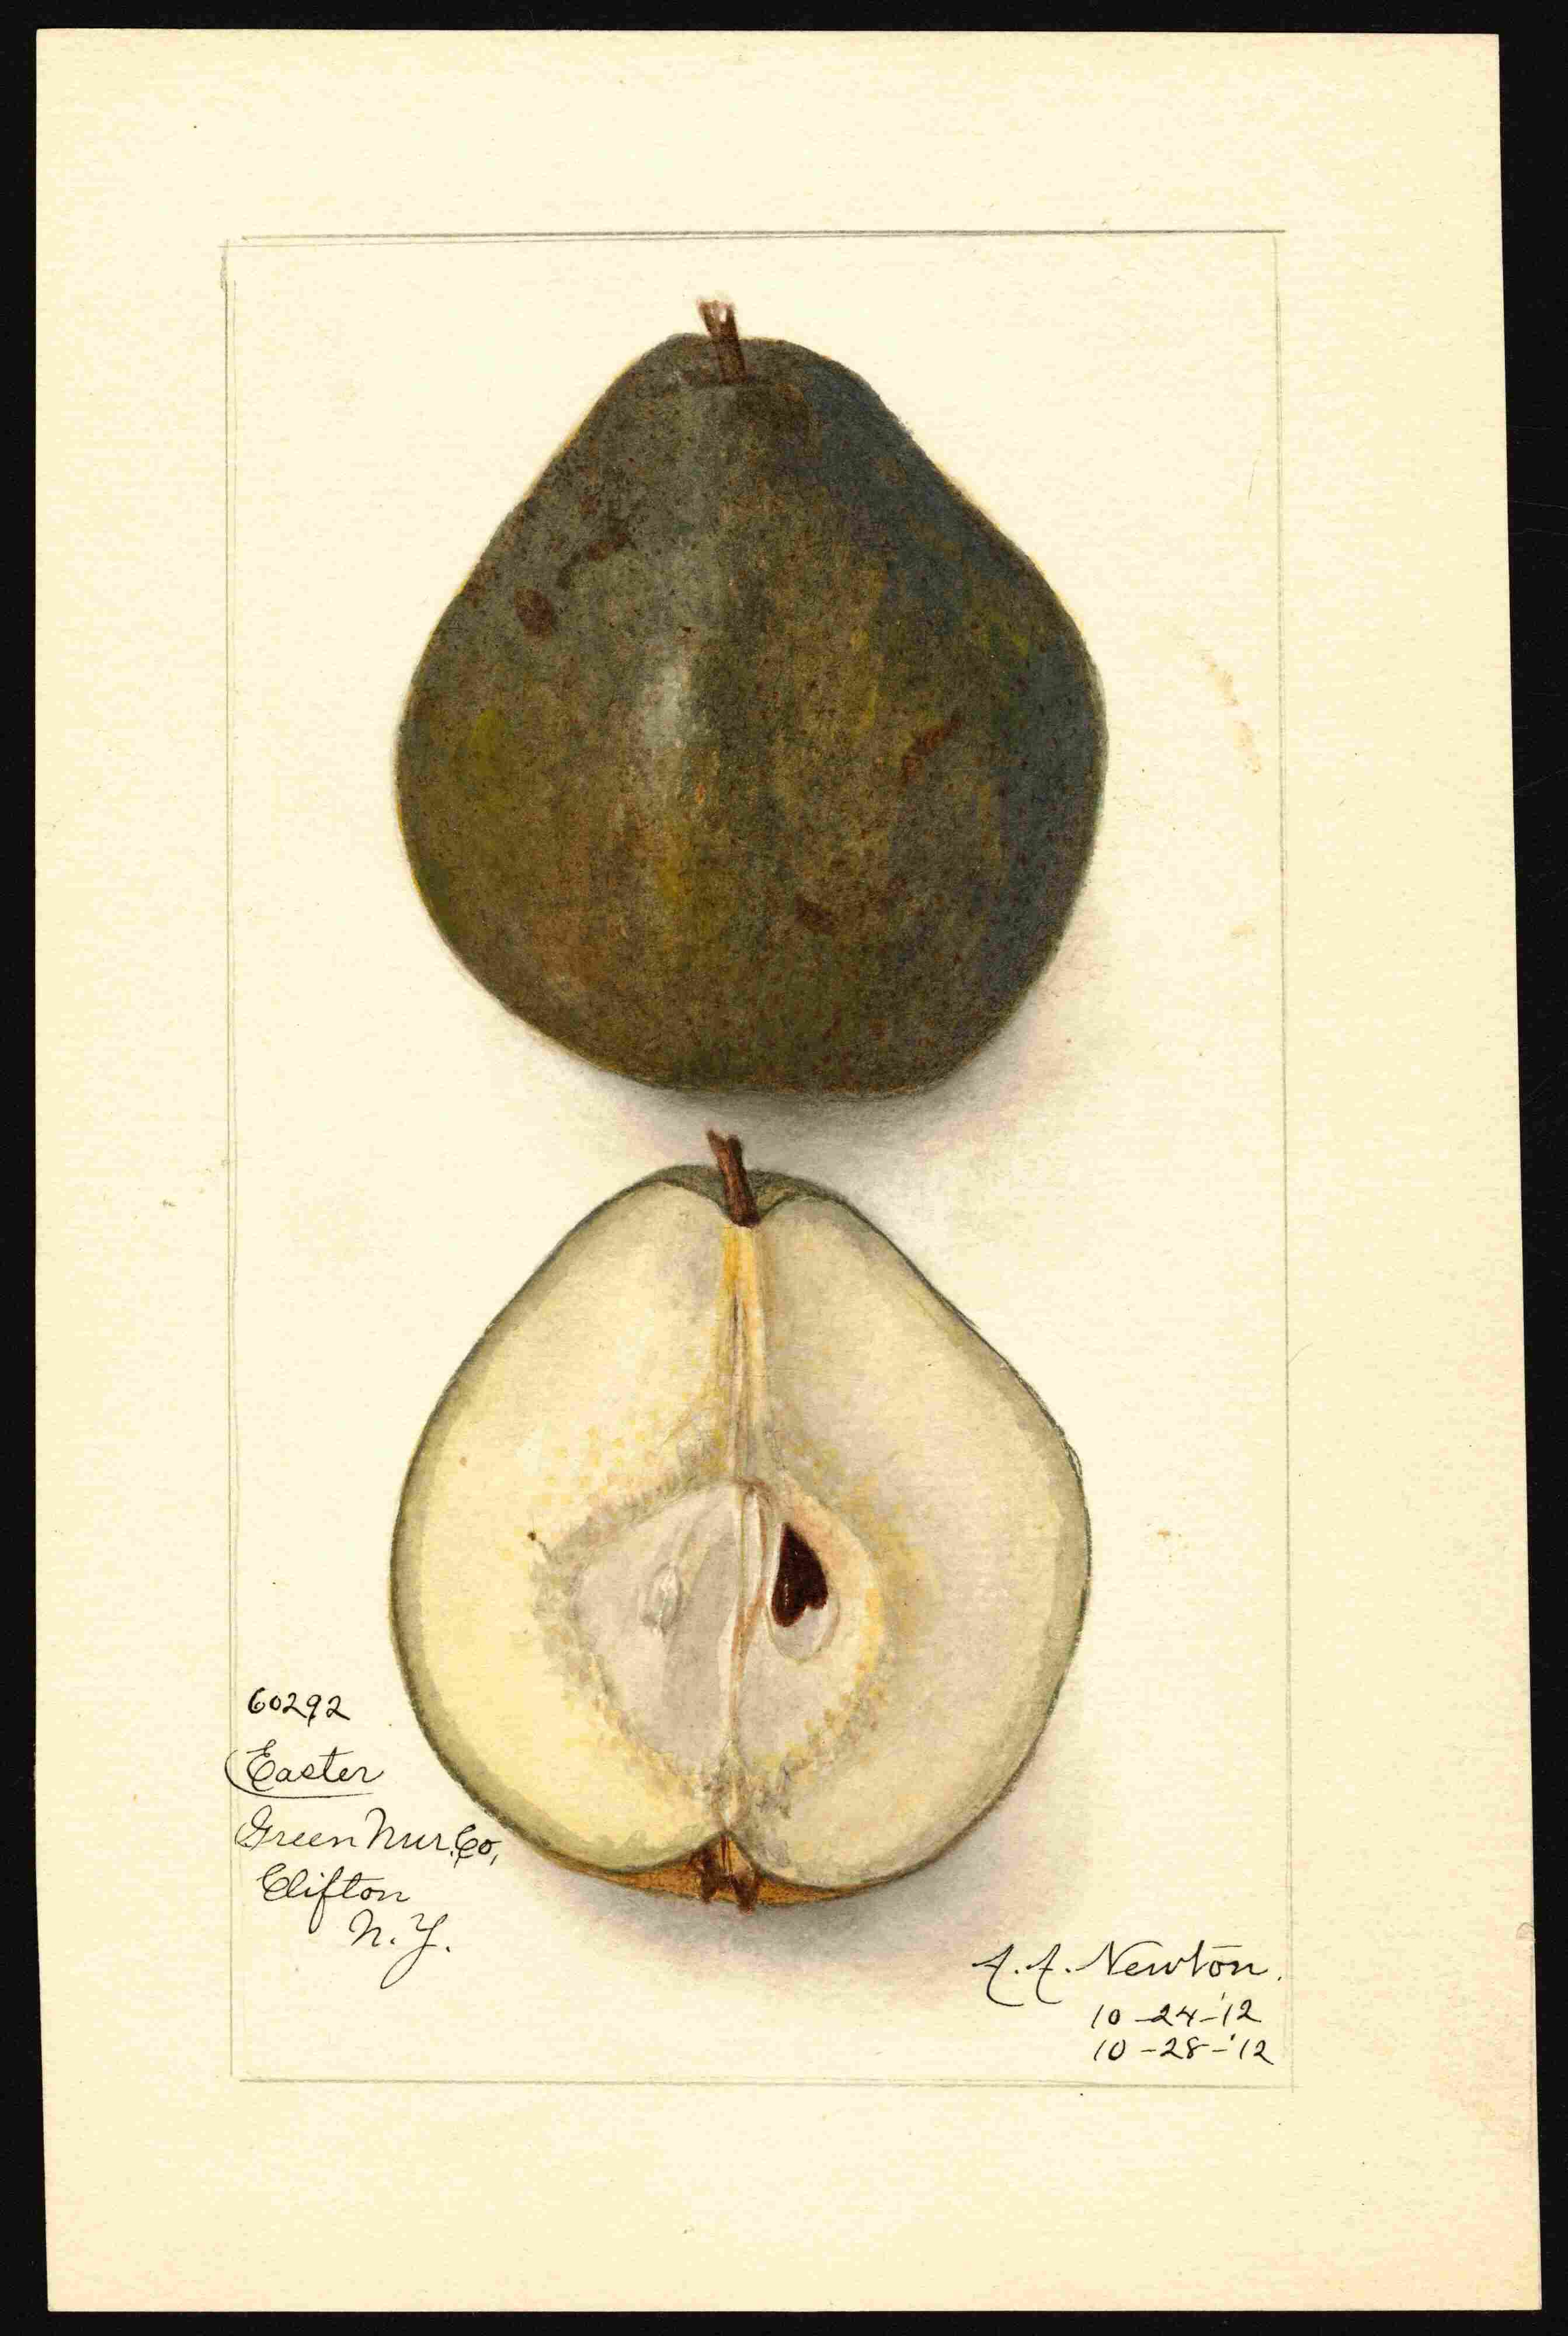 60292
Easter
Green Nur. Co,
Clifton
N. Y.
A. A. Newton.
10-24-'12
10-28-'12